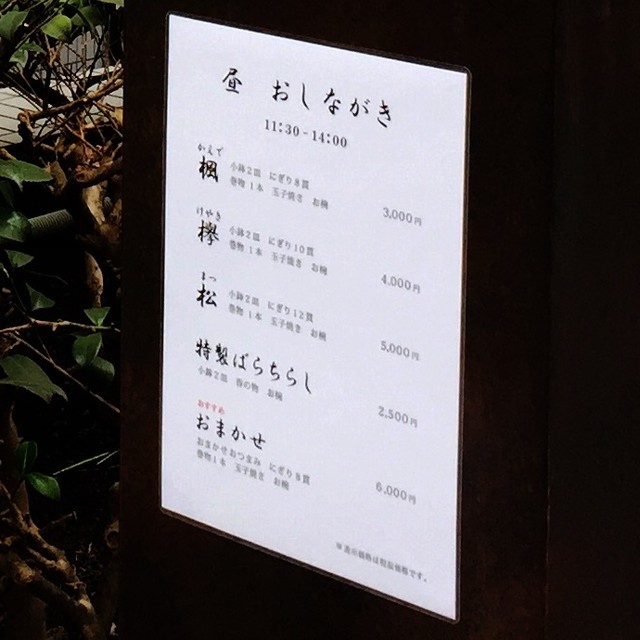 昼 おしながき
11:30-14:00
かえで
楓
小鉢2皿 にぎり8貫
巻物1本 玉子焼き お椀
3,000円
けやき
欅
小鉢2皿 にぎり10貫
巻物1本 玉子焼き お椀
4,000円
まつ
松
小鉢2皿 にぎり12貫
巻物1本 玉子焼き お椀
5,000円
特製ばらちらし
小鉢2皿 香の物 お椀
2,500円
おすすめ
おまかせ
おまかせおつまみ にぎり8貫
巻物1本 玉子焼き お椀
6,000円
※表示価格は税抜価格です。